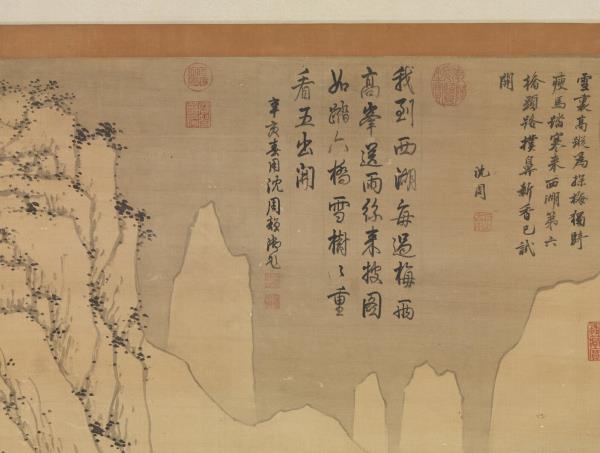 雪裏高蹤為探梅獨騎
瘦馬踏寒來西湖第六
橋頭路撲鼻新香已試
開
沈周
我到西湖每過梅兩
高峯送雨絲來披圖
如踏六橋雪樹〻重
看五出開
辛亥春用沈周韻御題